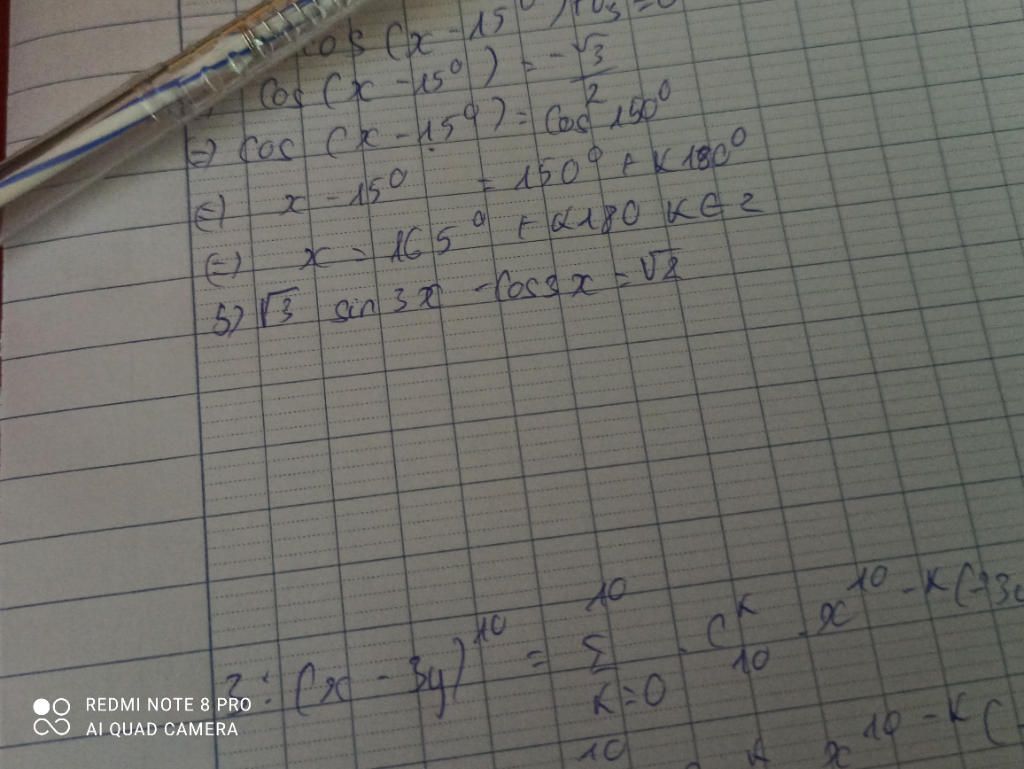 cos (x - 15⁰) + √3 = 0
cos (x - 15⁰) = - √3/2
=) cos (x - 15⁰) = cos 150⁰
(=) x - 15⁰ = 150⁰ + K180⁰
(=) x = 165⁰ + K180 K ∈ Z
b) √3 sin 3x - cos3x = √2
3: (x - 3y)¹⁰ = 10 Σ K=0 . C K 10 . x¹⁰⁻ᴷ (-3
10 x¹⁰⁻ᴷ (-
REDMI NOTE 8 PRO
AI QUAD CAMERA